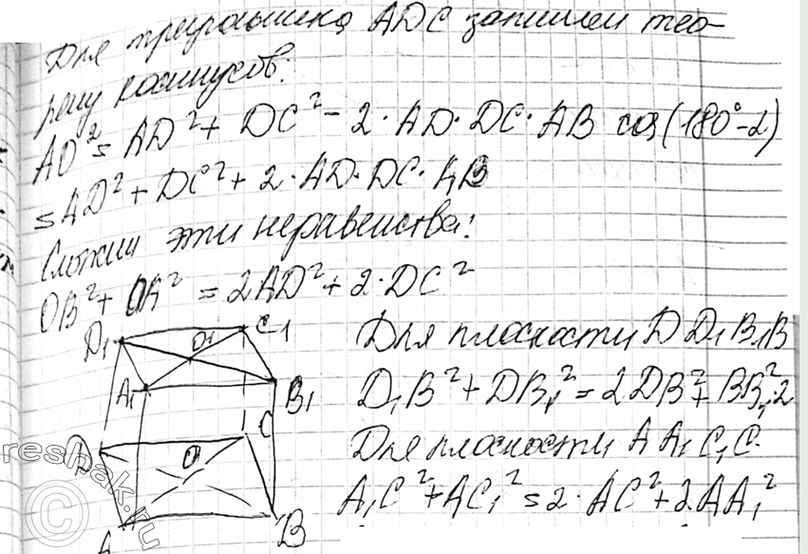 Для треугольника ADC запишем тео-
рему косинусов:
AD² = AD² + DC² - 2·AD·DC·AB cos(180°-α)
= AD² + DC² + 2·AD·DC·AB
Сложим эти неравенства:
OB² + OA² = 2AD² + 2·DC²
D₁ O₁ C₁
A₁ B₁
D O C
A B
Для плоскости DD₁B₁B
D₁B² + DB₁² = 2DB² + BB₁²·2
Для плоскости AA₁C₁C.
A₁C² + AC₁² = 2·AC² + 2AA₁²
reshak.ru
©